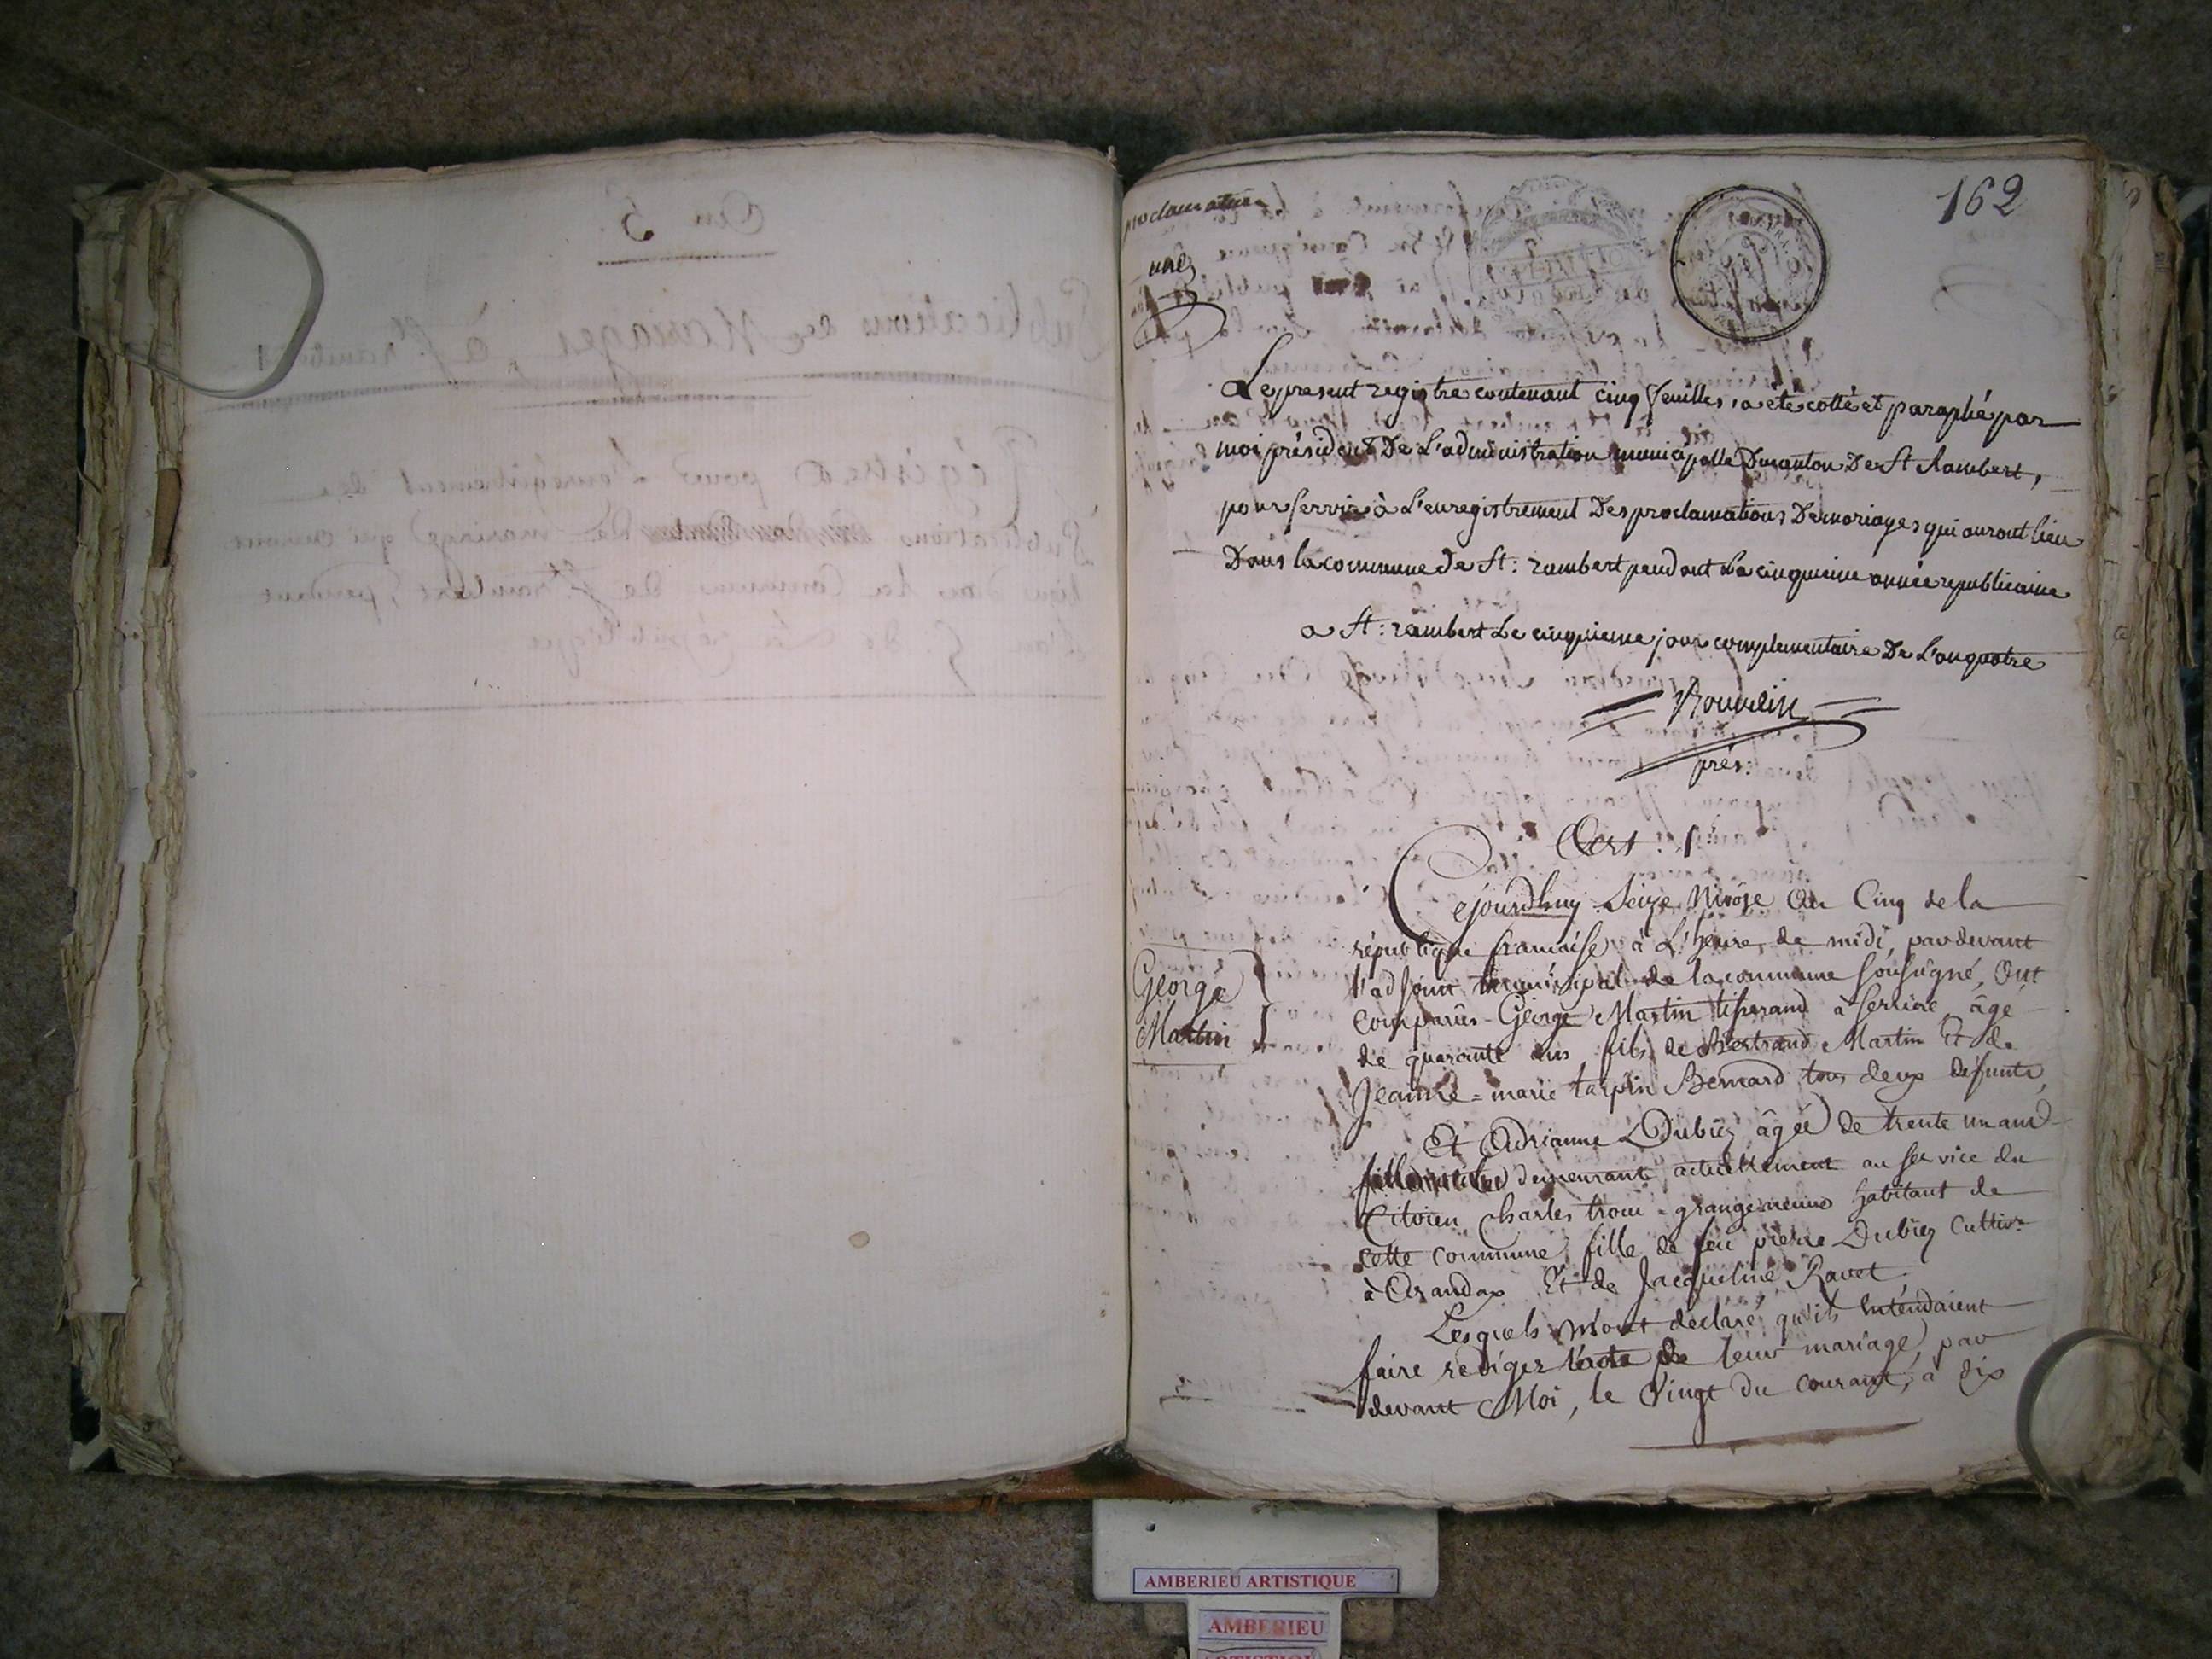 An 5.
Publications de Mariages, à St rambert
Régistre pour l'enregistrement des
Publications de mariage qui auront
lieu dans la Commune de St rambert, pendant
l'an 5 de la république
162
proclamation
une
Le present registre contenant cinq feuilles, a été cotté et paraphé par
moi président De L'administration municipalle Du canton De St Rambert,
pour servir à L'enregistrement Des proclamations De mariages qui auront lieu
Dans la commune de St: rambert pendant La cinquieme année republicaine
a St: rambert Le cinquieme jour complementaire De L'an quatre
prés:
1er
Cejourdhuy Seize Nivôse an Cinq de la
république francaise à L'heure de midi, pardevant
l'adjoint municipal de la commune soussigné, Ont
comparus George Martin tisserand à serriere âgé
de quarante ans fils de Bertrand Martin Et de
Jeanne=marie tarpin Bernard tous deux défunts,
Et Adrianne Dubiez âgée de trente un ans
demeurant actuellement au service du
Citoien Charles habitant de
cette commune, fille de feu pierre Dubiez Cultivr
à Arandas Et de Jacqueline Ravet.
Lesquels m'ont déclaré qu'ils entendaient
faire rediger l'acte de leur mariage, par
devant Moi, le Vingt du courant, à dix
George
Martin
AMBERIEU ARTISTIQUE
AMBERIEU
ARTISTIQUE